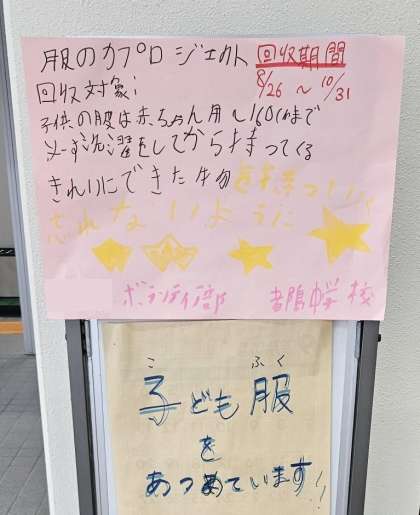 服のカプロジェクト 回収期間
8/26 ～ 10/31
回収対象:
子供の服は赤ちゃん用～160cmまで
必ず洗濯をしてから持ってくる
きれいにできた物
されないように
ボランティア部 中学校
こ ふく
子ども服
を
あつめています!!